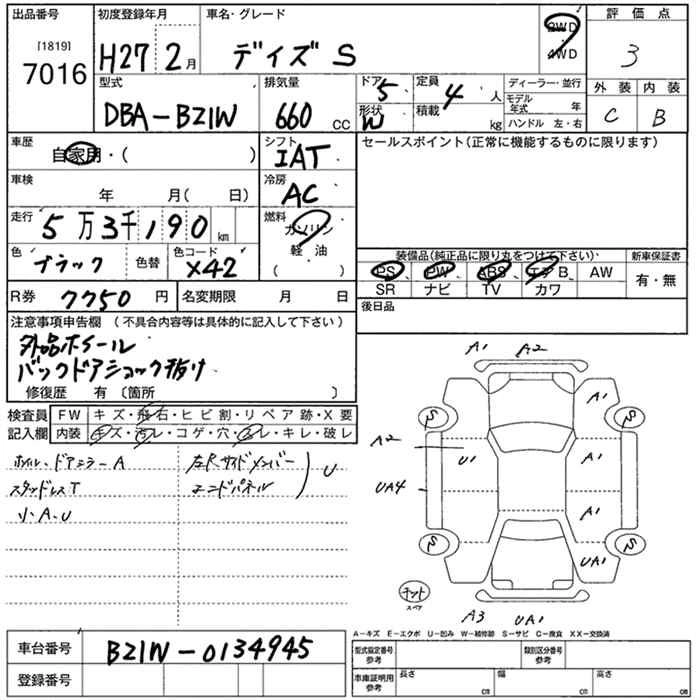 出品番号
[1819]
7016
初度登録年月
H27 2月
車名・グレード
デイズ S
2WD
4WD
評価点
3
外装 内装
C B
型式
DBA-B21W
排気量
660 CC
ドア 5
形状 W
定員 4 人
積載 kg
ディーラー・並行
モデル年式 年
ハンドル 左・右
車歴
自家用・( )
シフト
IAT
セールスポイント(正常に機能するものに限ります)
車検
年 月( 日)
冷房
AC
走行
5万3千190 km
燃料
ガソリン
軽油
( )
色
ブラック
色替
色コード
X42
装備品(純正品に限り丸をつけて下さい)
新車保証書
PS PW ABS エアB AW
有・無
SR ナビ TV カワ
R券 7750円
名変期限 月 日
後日品
注意事項申告欄 (不具合内容等は具体的に記入して下さい)
外品ホイール
バックドアショック抜け
修復歴 有〔箇所 〕
検査員
記入欄
FW キズ・飛石・ヒビ割・リペア跡・X要
内装 キズ・汚レ・コゲ・穴・スレ・キレ・破レ
ホイル、ドアミラーA
スタッドレスT
小A.U
左Rサイドメンバー
エンドパネル
U
A1 A2
A1
S S
A2
U1 A1
UA4
A1
S S
UA1
テント
スペア
A3 UA1
A-キズ E-エクボ U-凹み W-補修跡 S-サビ C-腐食 XX-交換済
車台番号
B21W-0134945
登録番号
型式指定番号
参考
類別区分番号
参考
車庫証明用
参考
長さ cm
幅 cm
高さ cm